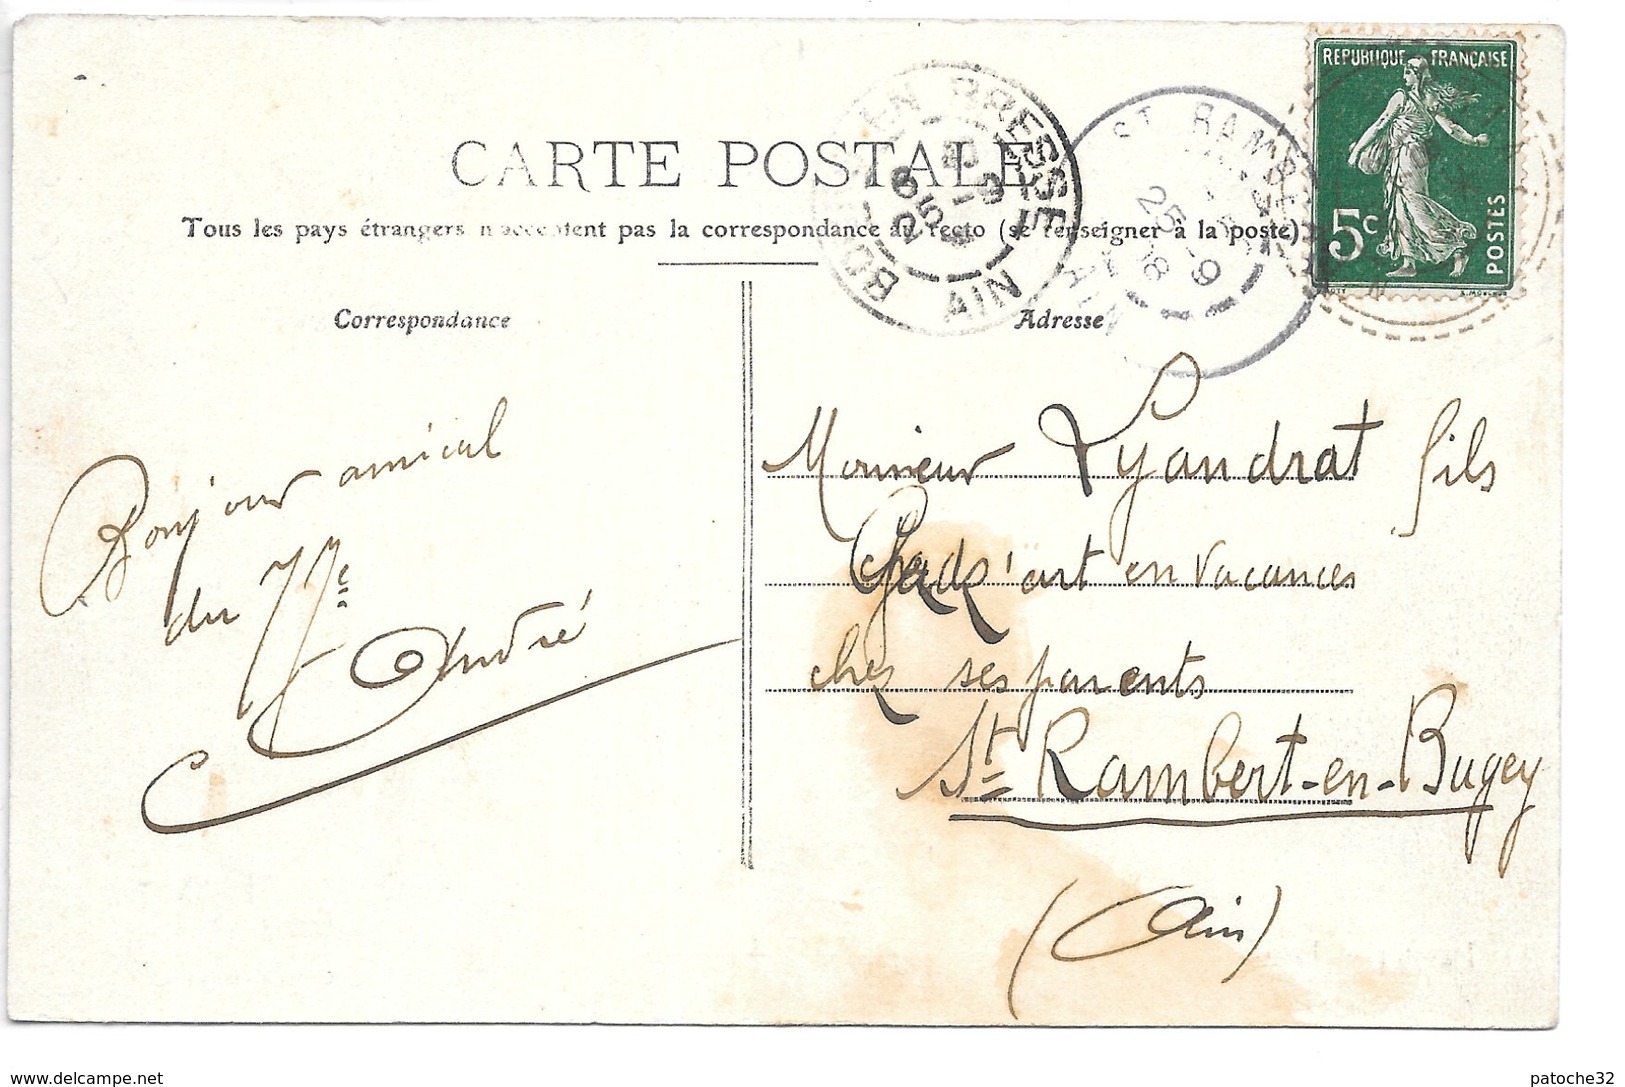 CARTE POSTALE
Tous les pays étrangers n'acceptent pas la correspondance au recto (se renseigner à la poste)
Correspondance
Adresse
REPUBLIQUE FRANÇAISE
5c
POSTES
EN BRESSE
AIN
25
ST RAMBERT
25 -8
AIN
Bonjour amical
du
André
Monsieur Lyandrat fils
Gadz'art en vacances
chez ses parents
St Rambert-en-Bugey
(Ain)
www.delcampe.net
patoche32